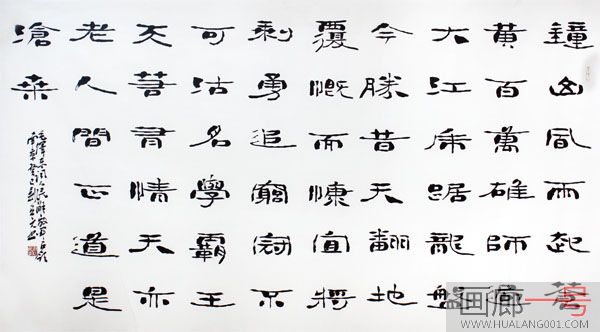 鐘山風雨起蒼
黃百萬雄師過
大江虎踞龍盤
今勝昔天翻地
覆慨而慷宜將
剩勇追窮寇不
可沽名學霸王
天若有情天亦
老人間正道是
滄桑
画廊一号
WWW.HUALANG001.COM